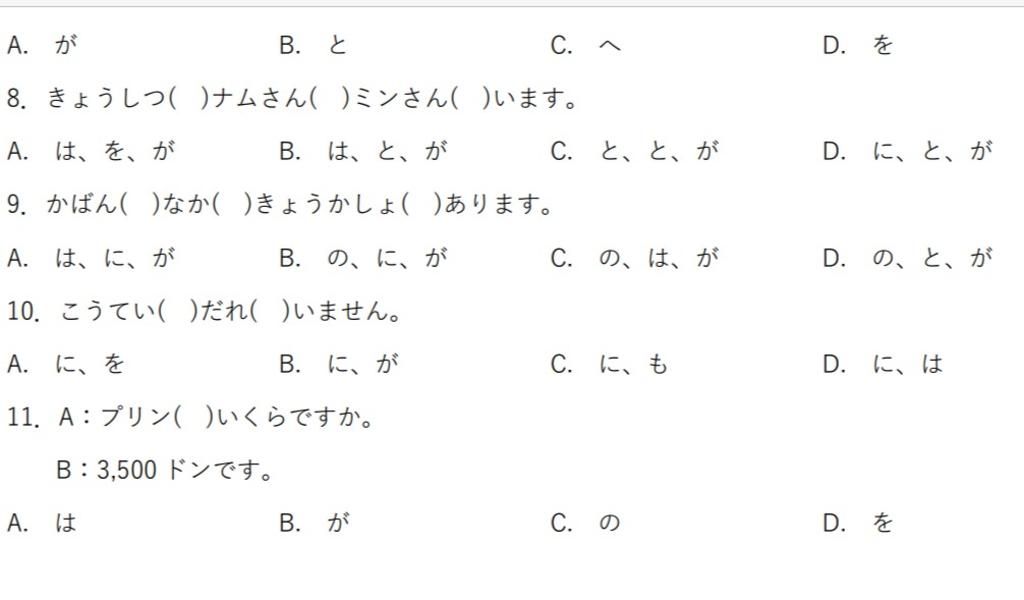 A. が B. と C. へ D. を
8. きょうしつ( )ナムさん( )ミンさん( )います。
A. は、を、が B. は、と、が C. と、と、が D. に、と、が
9. かばん( )なか( )きょうかしょ( )あります。
A. は、に、が B. の、に、が C. の、は、が D. の、と、が
10. こうてい( )だれ( )いません。
A. に、を B. に、が C. に、も D. に、は
11. A：プリン( )いくらですか。
B：3,500 ドンです。
A. は B. が C. の D. を